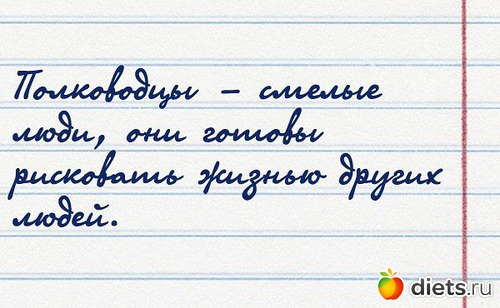 Полководцы – смелые
люди, они готовы
рисковать жизнью других
людей.
diets.ru